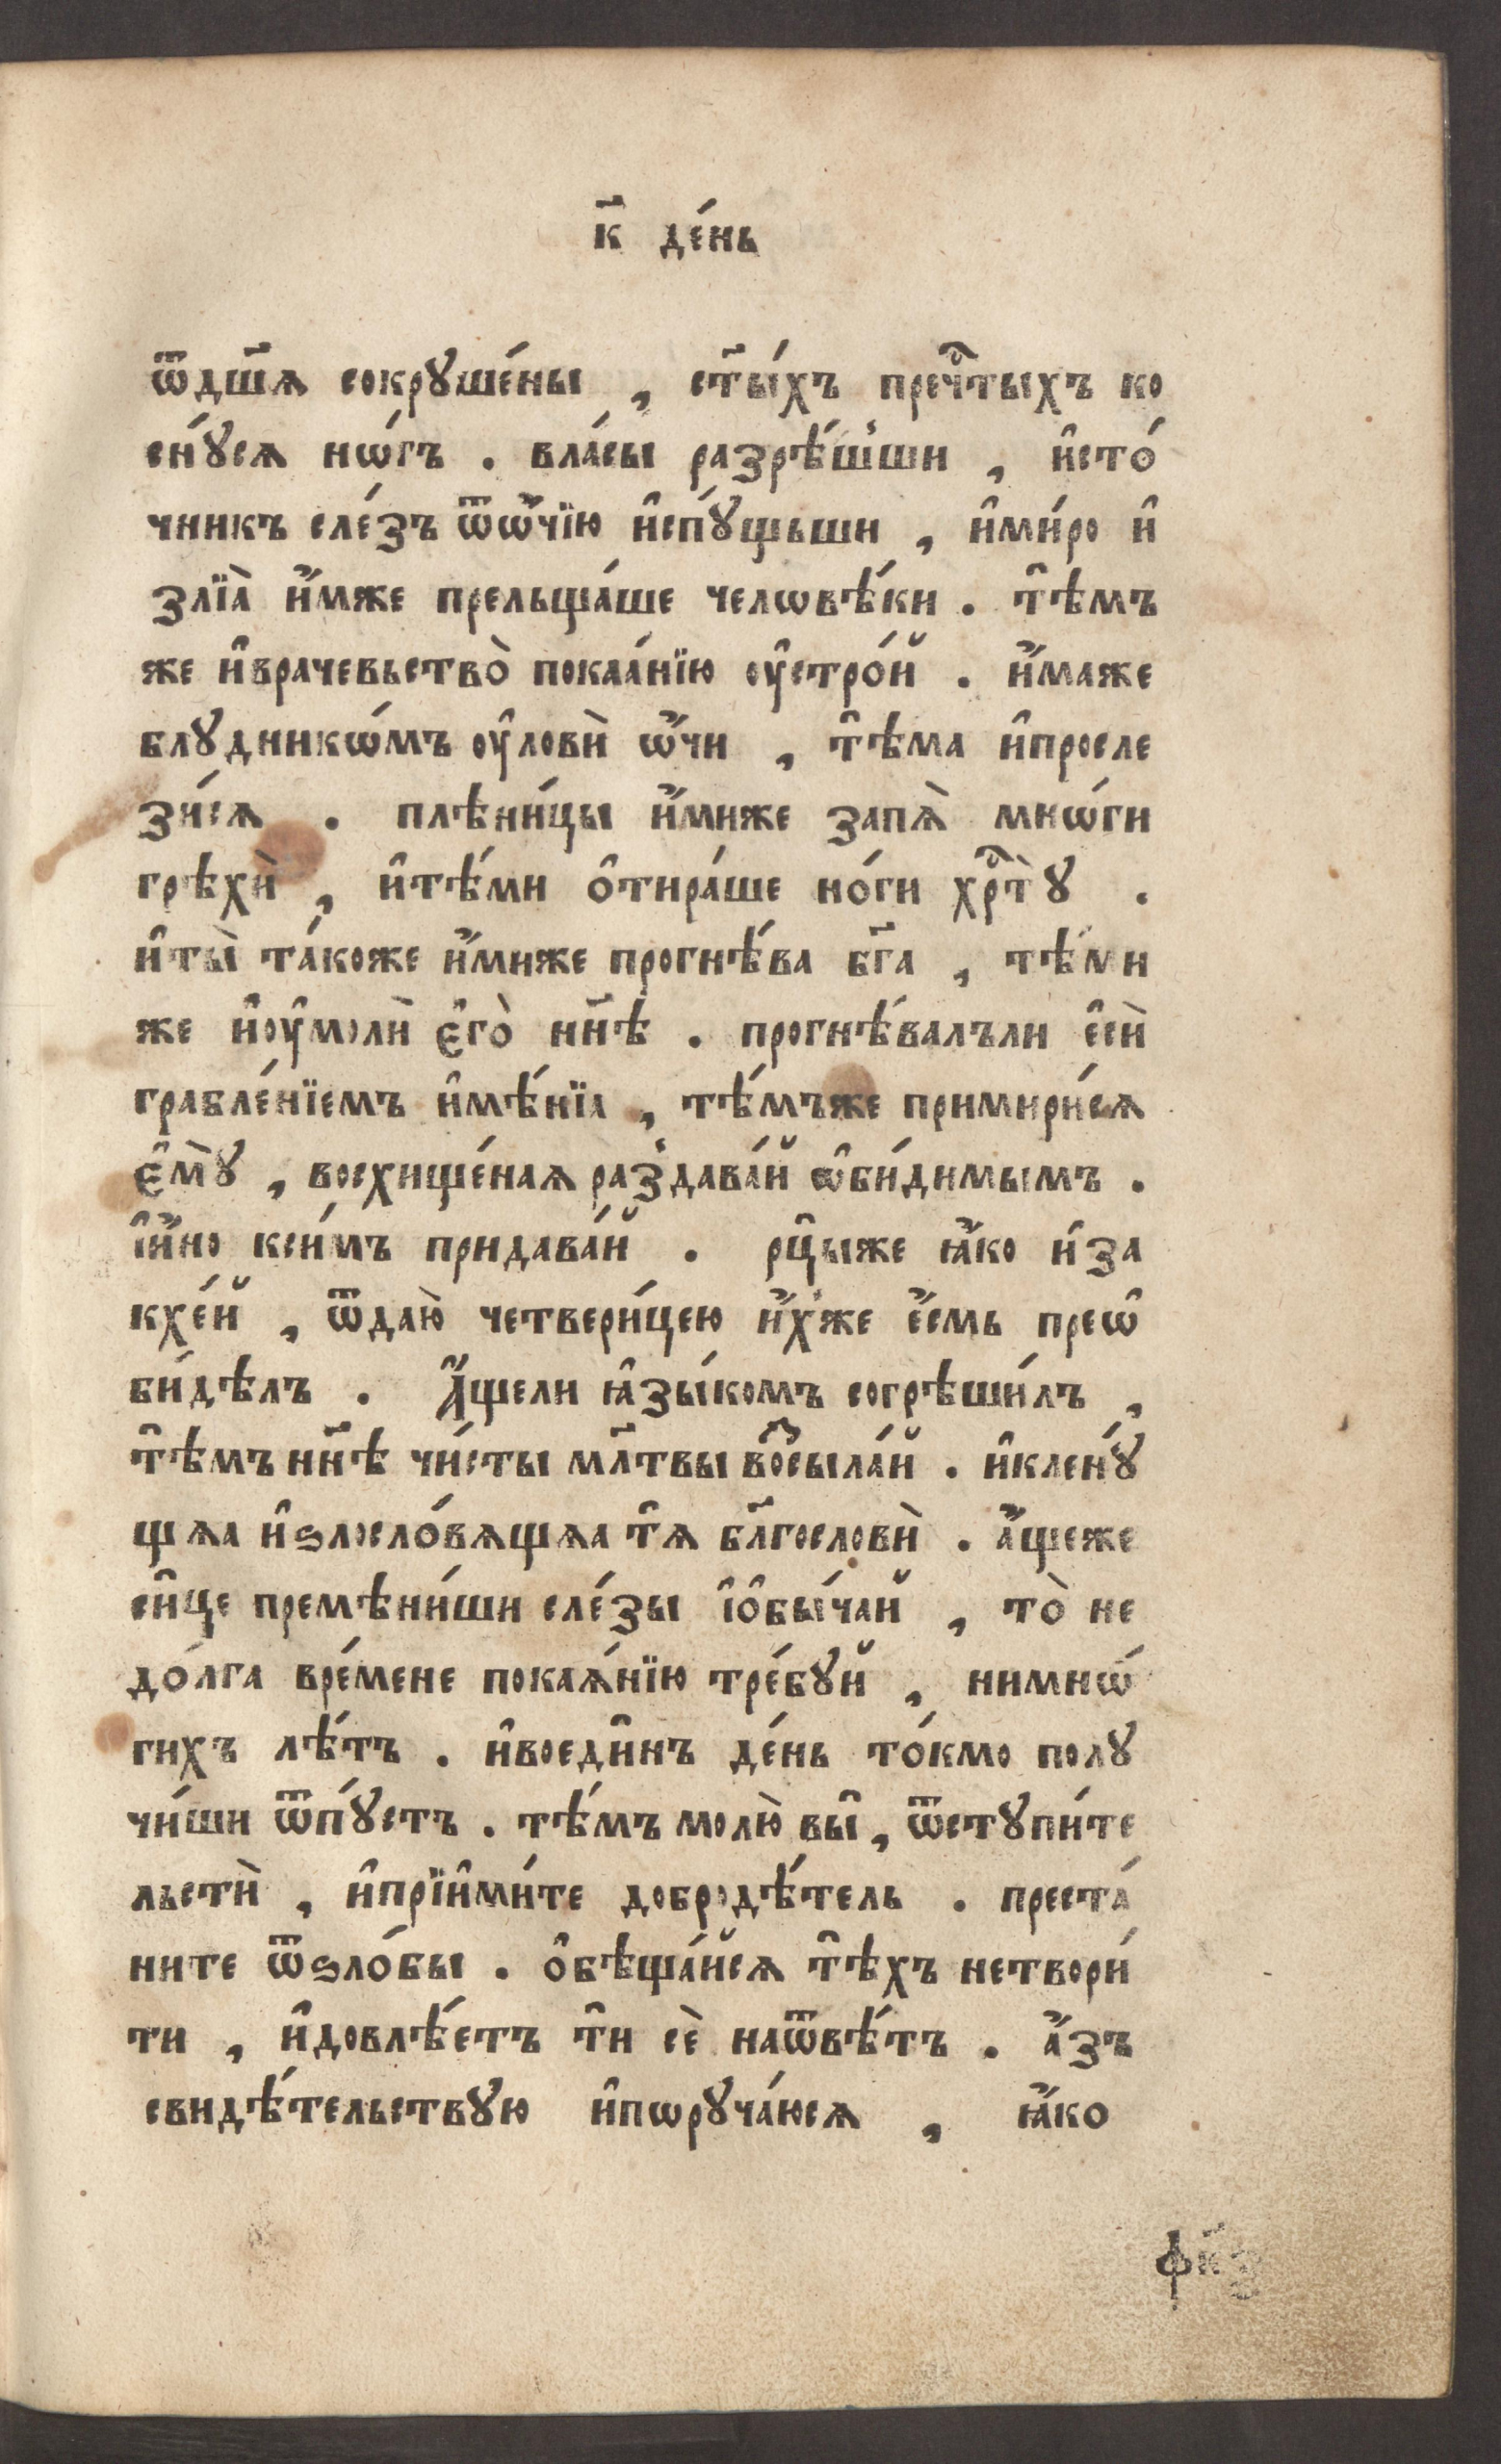 к҃ де́нь
ѿдш҃ѧ сокрꙋше́ны , ст҃ы́хъ преч҇тыхъ ко
сн́ꙋсѧ нѡ́гъ . вла́сы разрѣ́шꙿши , и҆сто́
чникъ сле́зъ ѿѡ҆́чїю и҆сп́ꙋщьши , и҆ми́ро и҆
злїѧ̀ и҆́мже прельща́ше челѡвѣ́ки . т҆ѣмъ
же и҆врачевьство̀ покаа́нїю ѹ҆стро́й . и҆́маже
блꙋдникѡ́мъ ѹ҆ловѝ ѡ҆́чи , т҆ѣма и҆просле
зи́сѧ . плѣни́цы и҆́миже запѧ̀ мнѡ́ги
грѣхѝ , и҆тѣ́ми о҆тира́ше но́ги хр҇т̀ꙋ .
и҆ты̀ та́коже и҆́миже прогнѣ́ва бг҃а , тѣ́ми
же и҆ѹ҆молѝ є҆го̀ нн҃ѣ . прогнѣ́валъли є҆сѝ
грабле́нїемъ и҆мѣ́нїа , тѣ́мъже примири́сѧ
є҆м̀ꙋ , восхище́наѧ разꙿдава́й ѡ҆би́димымъ .
і҆и҆́но кси́мъ придава́й . рц҆ыже ꙗ҆́ко и́за
кхе́й , ѿдаю̀ четвери́цею и҆́хꙿже е҆́смь преѡ҆
би́дѣлъ . А҆́щели ꙗ҆зы́комъ согрѣши́лъ ,
т҆ѣмъ нн҃ѣ чи́сты мл҃твы во҆сыла́й . и҆клен́ꙋ
щѧа и҆ѕлосло́вѧщѧа т҆ѧ бл҃гословѝ . а҆́щеже
си҆це премѣни́ши сле́зы і҆о҆бы́чай , то̀ не
до́лга вре́мене покаѧ́нїю тре́бꙋй , нимнѡ́
гихъ лѣ́тъ . и҆воеди҆нъ де́нь то́кмо полꙋ
чи́ши ѿп́ꙋстъ . тѣ́мъ молю̀ вы҆ , ѿстꙋпи́те
льстѝ , и҆прїи҆ми́те добродѣ́тель . преста́
ните ѿѕло́бы . о҆бѣща́йсѧ т҆ѣхъ нетвори́
ти , и҆довлѣ́етъ т҆и сѐ наѿвѣ́тъ . а҆́зъ
свидѣ́тельствꙋю и҆пѡрꙋча́юсѧ , ꙗ҆́ко
фк҃з